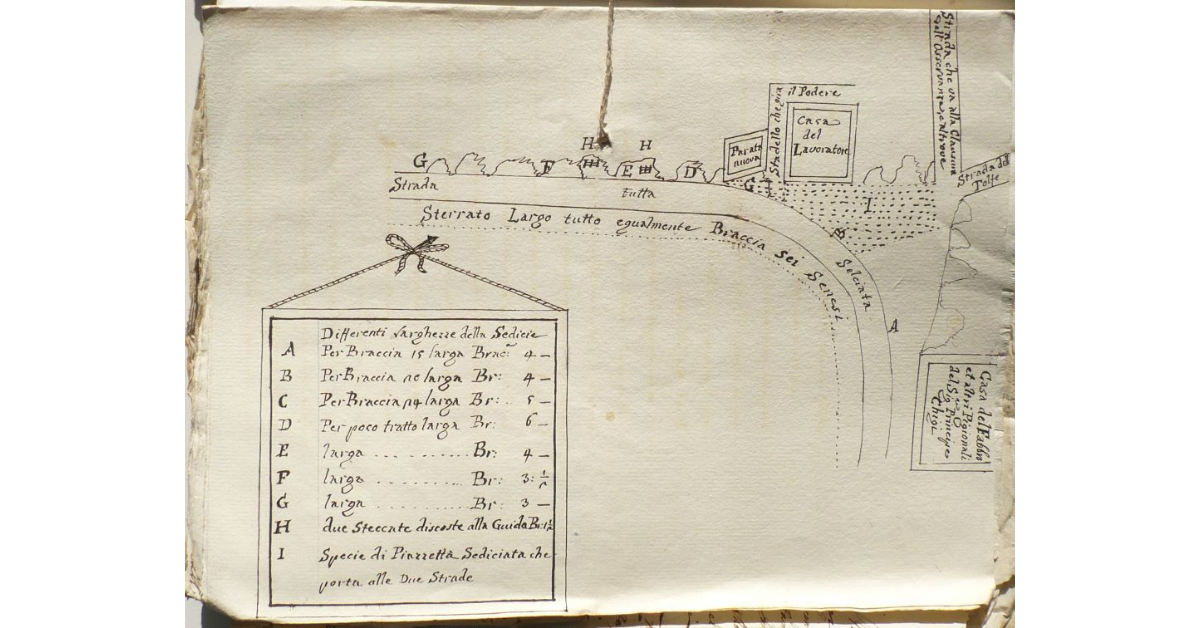 Strada che va alla Clausura
dall'Osservanza, e altrove
il Podere
Stadello che gira
Casa
del
Lavoratore
Parata
nuova
Strada del
Tolfe
H H
G F E D
C H
I
Strada tutta
B
Selciata
A
Sterrato Largo tutto egualmente Braccia sei Senesi
Casa del Fabbro
et altri Pigionali
del Sig. Principe
Chigi
Differenti Larghezze della Sedicie
A Per Braccia 15 larga Brac: 4 –
B Per Braccia 10 larga Br: 4 –
C Per Braccia 14 larga Br: 5 –
D Per poco tratto larga Br: 6 –
E larga .......... Br: 4 –
F larga .......... Br: 3:
G larga .......... Br: 3 –
H due Steccate discoste alla Guida Br: 1½
I Specie di Piazzetta Sediciata che
porta alle Due Strade